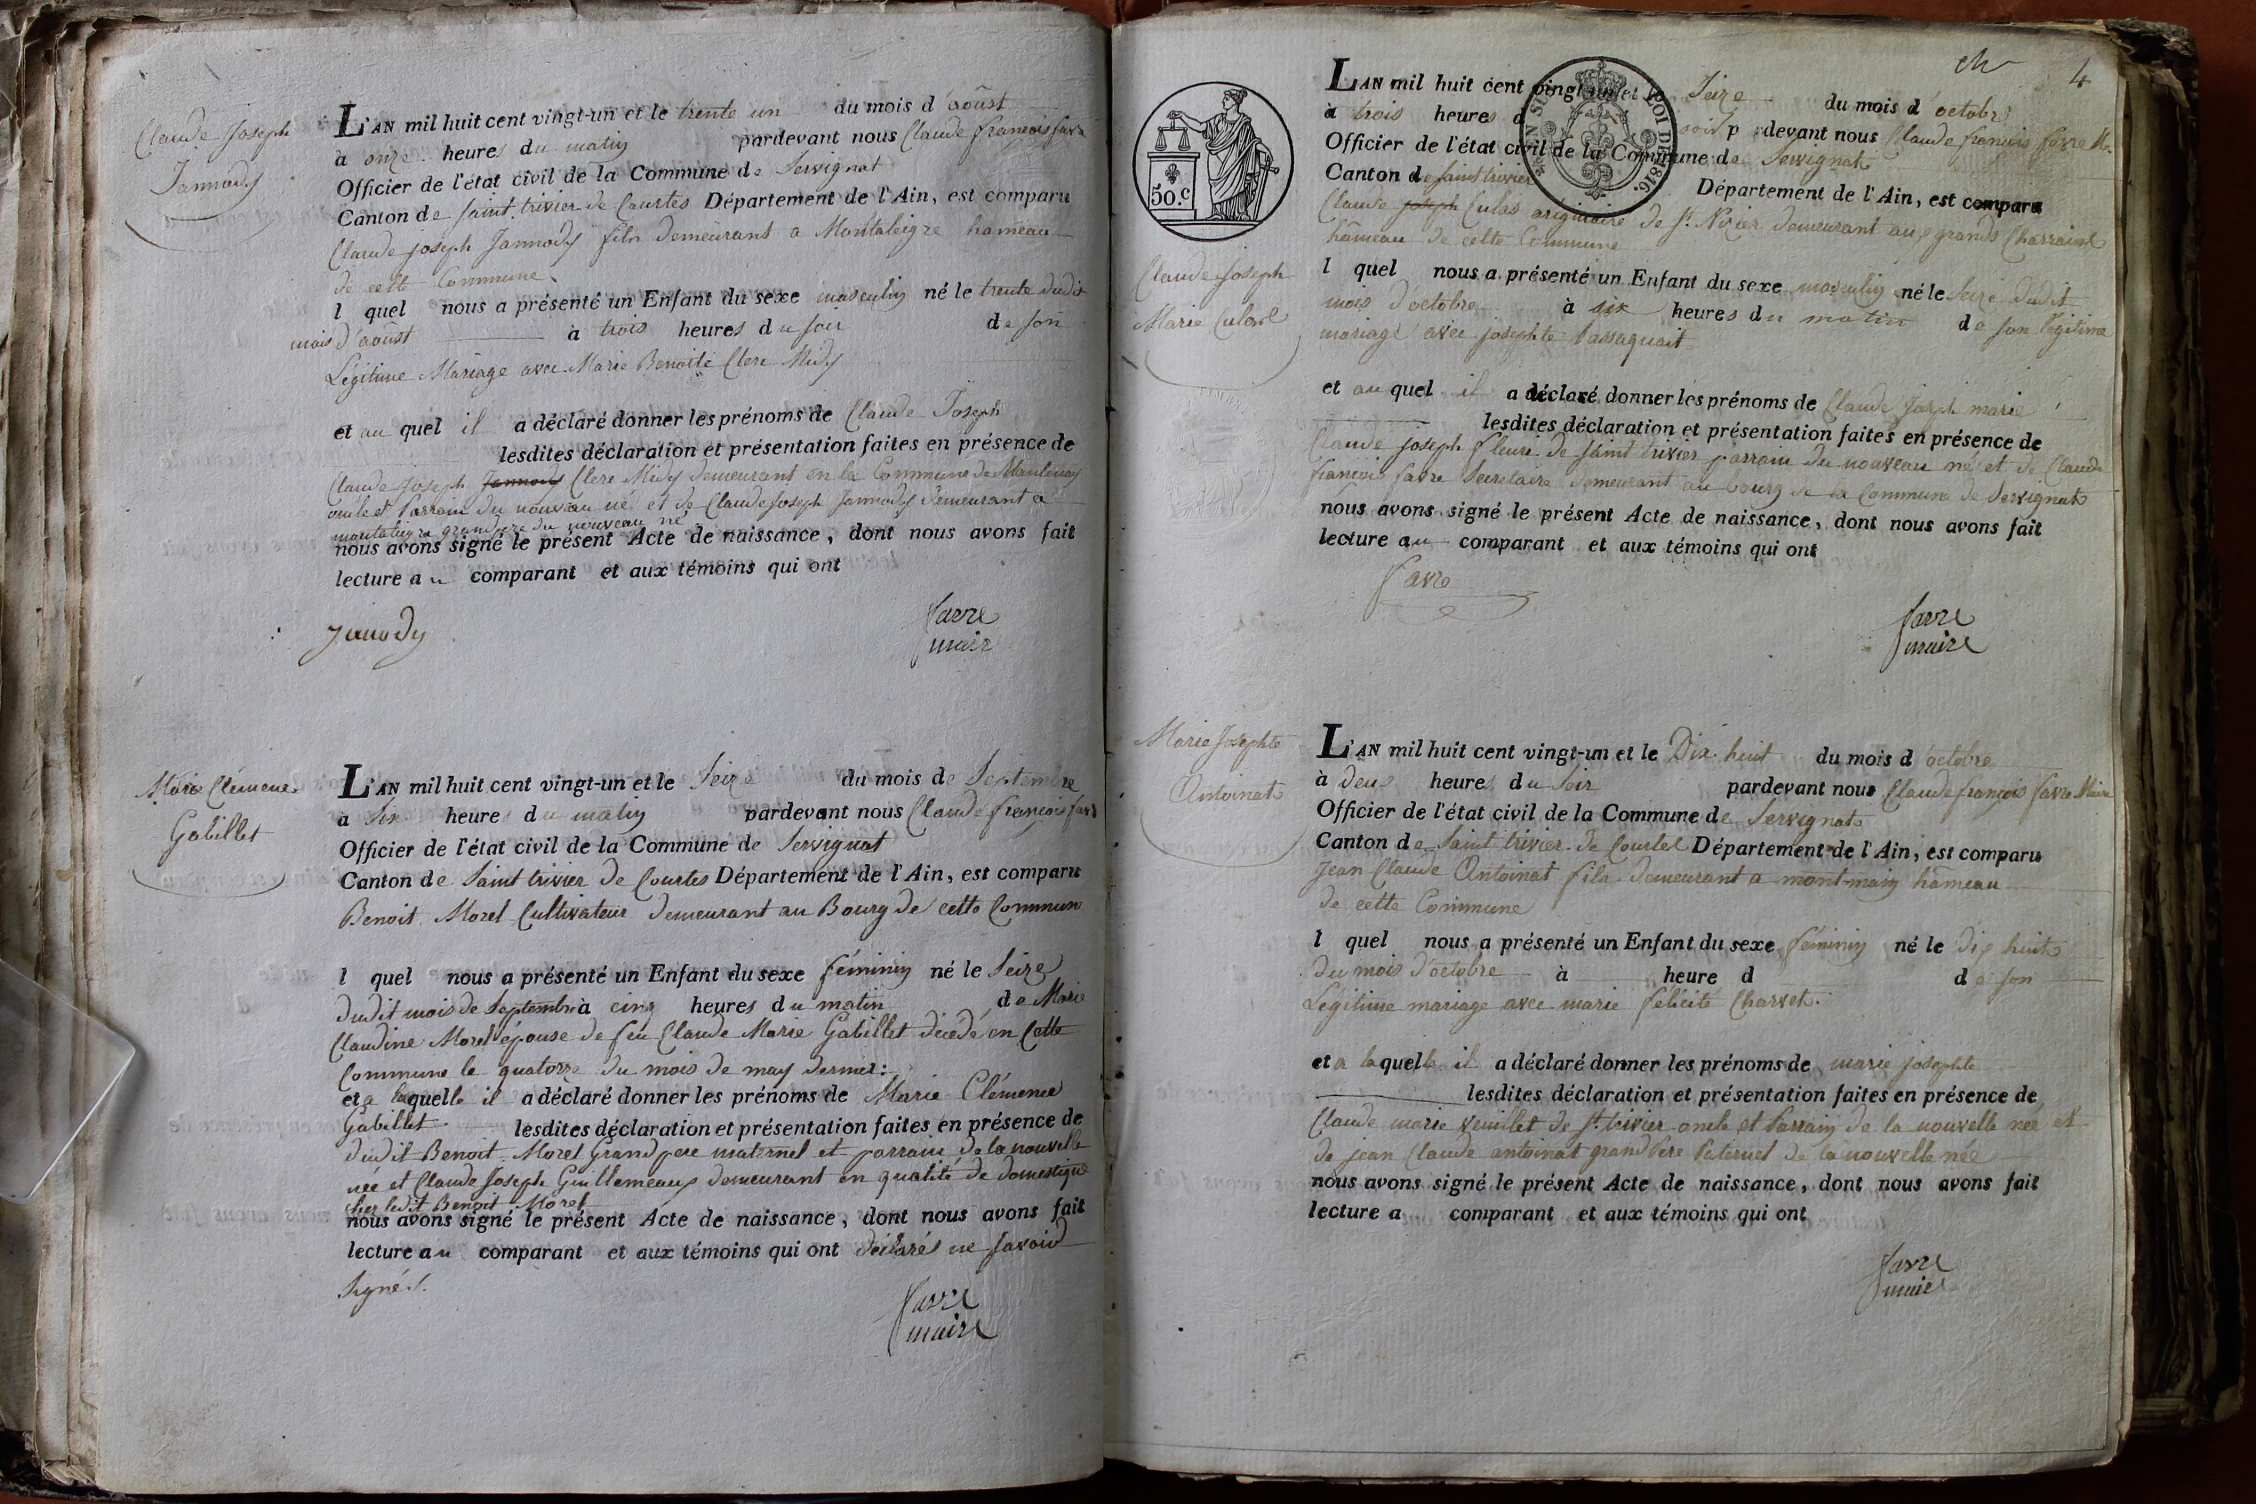 Claude Joseph
Jannody
L'AN mil huit cent vingt-un et le trente un du mois d'août
à onze heures du matin pardevant nous Claude françois favre
Officier de l'état civil de la Commune de Servignat
Canton de Saint trivier de Courtes Département de l'Ain, est comparu
Claude joseph Jannody fils demeurant a Montaleigre hameau
de cette Commune
l quel nous a présenté un Enfant du sexe masculin né le trente dudit
mois d'août à trois heures du soir de son
Légitime Mariage avec Marie Benoite Clerc Midy
et au quel il a déclaré donner les prénoms de Claude Joseph
lesdites déclaration et présentation faites en présence de
Claude joseph Jannody Clerc Midy demeurant en la Commune de Mantenay
oncle et Parrain du nouveau né et de Claude Joseph Jannody demeurant a
montaleigre grand pere du nouveau né
nous avons signé le présent Acte de naissance, dont nous avons fait
lecture au comparant et aux témoins qui ont
Janody
favre
maire
Marie Clémence
Gabillet
L'AN mil huit cent vingt-un et le Seize du mois de Septembre
à Six heures du matin pardevant nous Claude françois favre
Officier de l'état civil de la Commune de Servignat
Canton de Saint trivier de Courtes Département de l'Ain, est comparu
Benoit Morel Cultivateur demeurant au Bourg de cette Commune
l quel nous a présenté un Enfant du sexe féminin né le Seize
dudit mois de Septembre à cinq heures du matin de Marie
Claudine Morel épouse de feu Claude Marie Gabillet décédé en Cette
Commune le quatorze du mois de may dernier:
et a laquelle il a déclaré donner les prénoms de Marie Clémence
Gabillet lesdites déclaration et présentation faites en présence de
dudit Benoit Morel Grand pere maternel et parrain de la nouvelle
née et Claude Joseph Guillemeaux demeurant en qualité de domestique
chez ledit Benoit Morel
nous avons signé le présent Acte de naissance, dont nous avons fait
lecture au comparant et aux témoins qui ont déclarés ne savoir
signés.
favre
maire
4
50.c
ROI DE 1816.
L'AN mil huit cent vingt-un et le Seize du mois d octobre
à trois heures d soir pardevant nous Claude françois favre M.
Officier de l'état civil de la Commune de Servignat
Canton de Saint trivier Département de l'Ain, est comparu
Claude joseph Culas originaire de St. Nizier demeurant aux grands Charraine
hâmeau de cette Commune
Claude Joseph
Marie Culas
l quel nous a présenté un Enfant du sexe masculin né le Seize dudit
mois d'octobre à six heures du matin de son légitime
mariage avec josephte Passaquait
et au quel il a déclaré donner les prénoms de Claude Joseph marie
lesdites déclaration et présentation faites en présence de
Claude joseph fleurie de Saint trivier parrain du nouveau né et de Claude
françois favre Secretaire demeurant au bourg de la Commune de Servignat
nous avons signé le présent Acte de naissance, dont nous avons fait
lecture au comparant et aux témoins qui ont
favre
favre
maire
Marie Josephte
Antoinat
L'AN mil huit cent vingt-un et le Dix huit du mois d octobre
à deux heures du soir pardevant nous Claude françois favre Maire
Officier de l'état civil de la Commune de Servignat
Canton de Saint trivier de Courtes Département de l'Ain, est comparu
Jean Claude Antoinat fils demeurant a mont-main hâmeau
de cette Commune
l quel nous a présenté un Enfant du sexe féminin né le dix huit
du mois d'octobre à heure d de son
Légitime mariage avec marie félicité Charvet.
et a laquelle il a déclaré donner les prénoms de marie josephte
lesdites déclaration et présentation faites en présence de
Claude marie Veuillet de St. trivier oncle et Parrain de la nouvelle née et
de jean Claude antoinat grand Pere Paternel de la nouvelle née
nous avons signé le présent Acte de naissance, dont nous avons fait
lecture a comparant et aux témoins qui ont
favre
maire